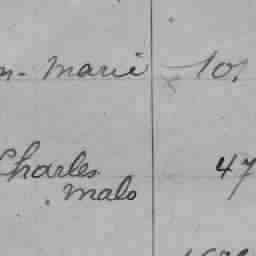 n-Marie 10.
Charles 47
malo